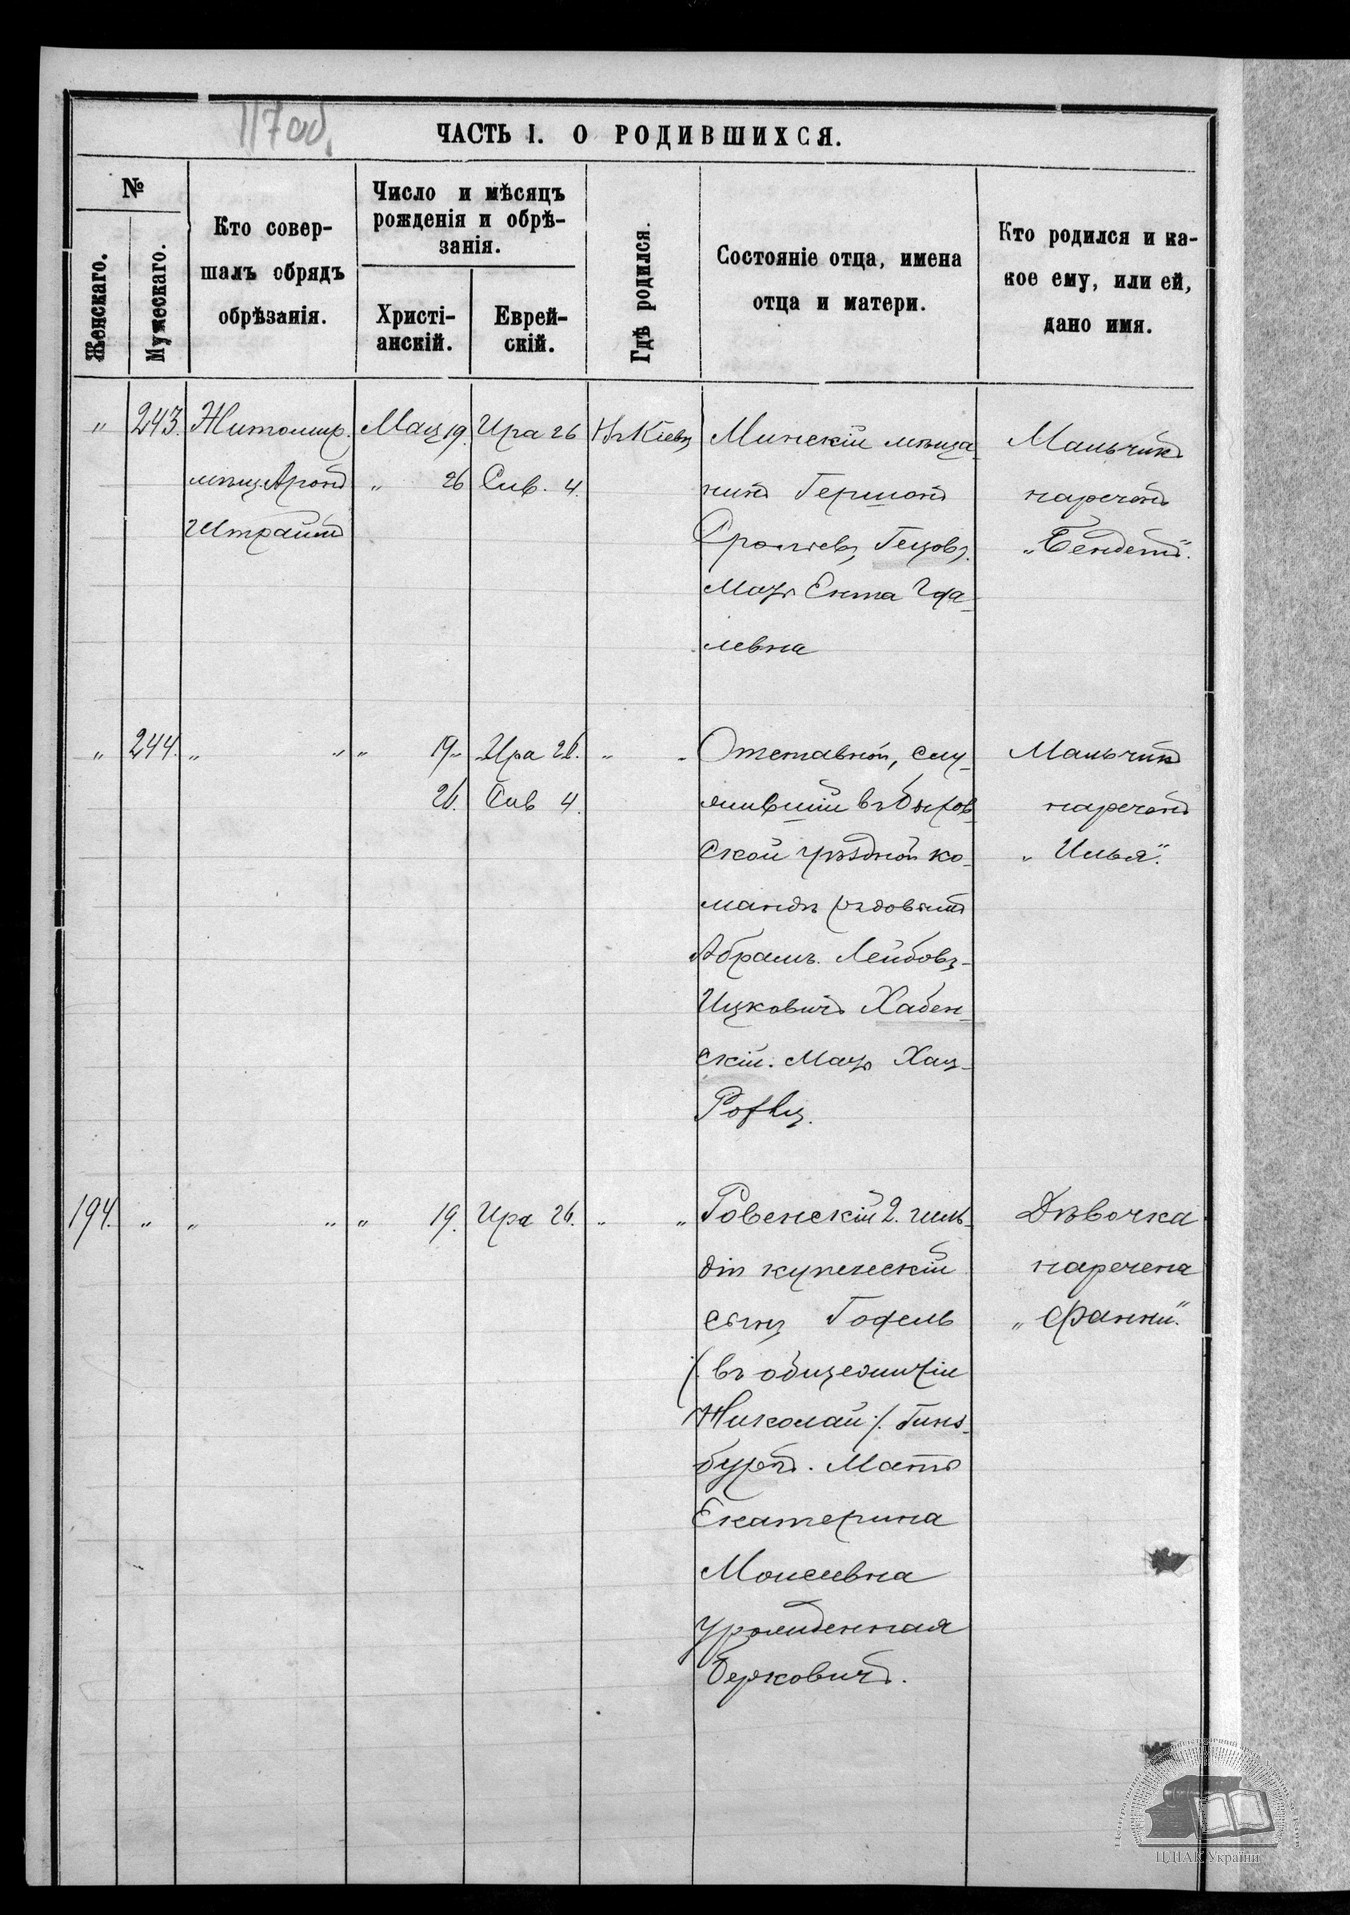 117 об.
ЧАСТЬ I. О РОДИВШИХСЯ.
№
Женскаго.
Мужескаго.
Кто совер-
шалъ обрядъ
обрѣзанія.
Число и мѣсяцъ
рожденія и обрѣ-
занія.
Христі-
анскій.
Еврей-
скій.
Гдѣ родился.
Состояніе отца, имена
отца и матери.
Кто родился и ка-
кое ему, или ей,
дано имя.
" 243. Житомир. Мая 19. Ира 26 Въ Кіевѣ
мѣщ. Аронъ " 26 Сив. 4.
Штраймъ
Минскій мѣща-
нинъ Гершонъ
Сролiевъ Гецовъ.
Мать Ента Гда-
левна
Мальчикъ
нареченъ
„Бендетъ".
" 244. " " " 19. Ира 26. " "
26. Сив 4.
Отставной, слу-
жившій въ Быхов-
ской уѣздной ко-
мандѣ рядовымъ
Абрамъ Лейбовъ-
Ицковичъ Хабен-
скій. Мать Хая-
Мальчикъ
нареченъ
„Илья".
194. " " " " 19. Ира 26. " "
Ровенскій 2. гиль-
діи купеческій
сынъ Гофель
/. въ общежитіи
Николай ./. Гинз-
бургъ. Мать
Екатерина
Моисеевна
урожденная
Берковичъ.
Дѣвочка
наречена
„Фанни".
ЦДІАК України